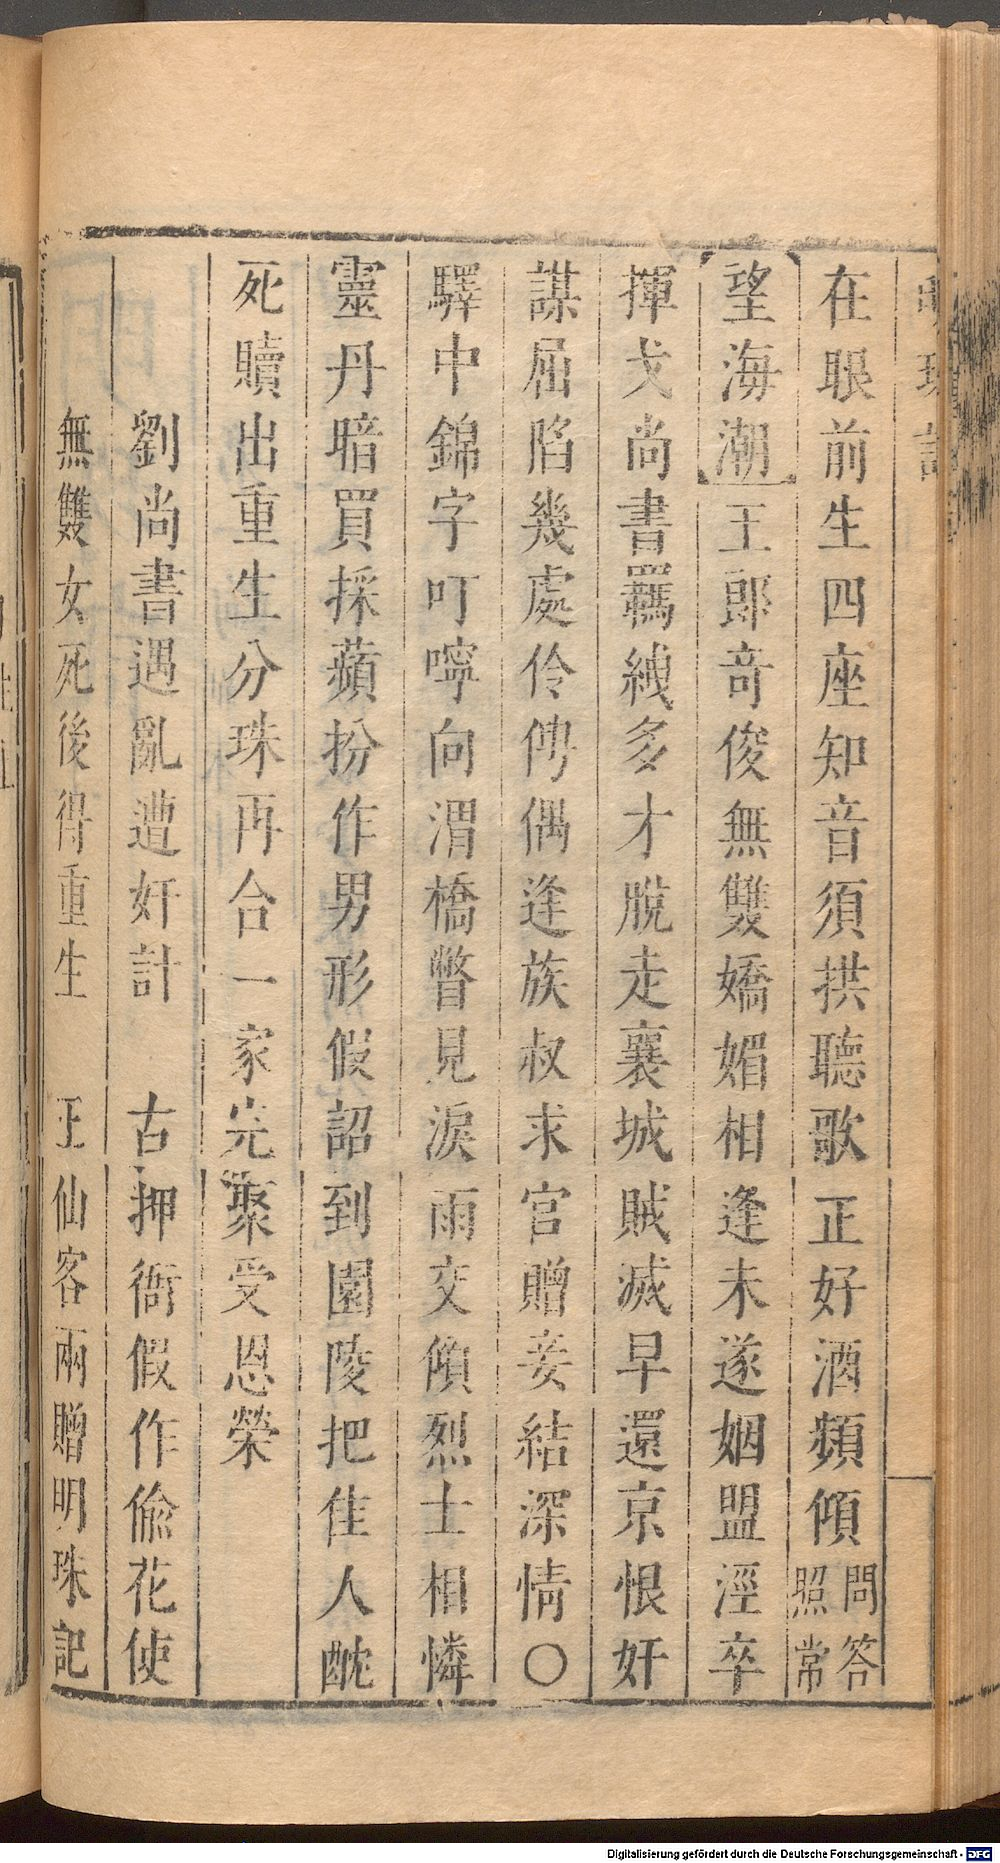 在眼前生四座知音須拱聽歌正好酒頻傾問答照常
望海潮王郎奇俊無雙嬌媚相逢未遂姻盟涇卒
揮戈尚書羈絏多才脫走襄城賊滅早還京恨奸
謀屈陷幾處伶俜偶逢族叔求官贈妾結深情〇
驛中錦字叮嚀向渭橋瞥見淚雨交傾烈士相憐
靈丹暗買採蘋扮作男形假詔到園陵把佳人酖
死贖出重生分珠再合一家完聚受恩榮
劉尚書遇亂遭奸計　古押衙假作偷花使
無雙女死後得重生　王仙客兩贈明珠記
Digitalisierung gefördert durch die Deutsche Forschungsgemeinschaft - DFG